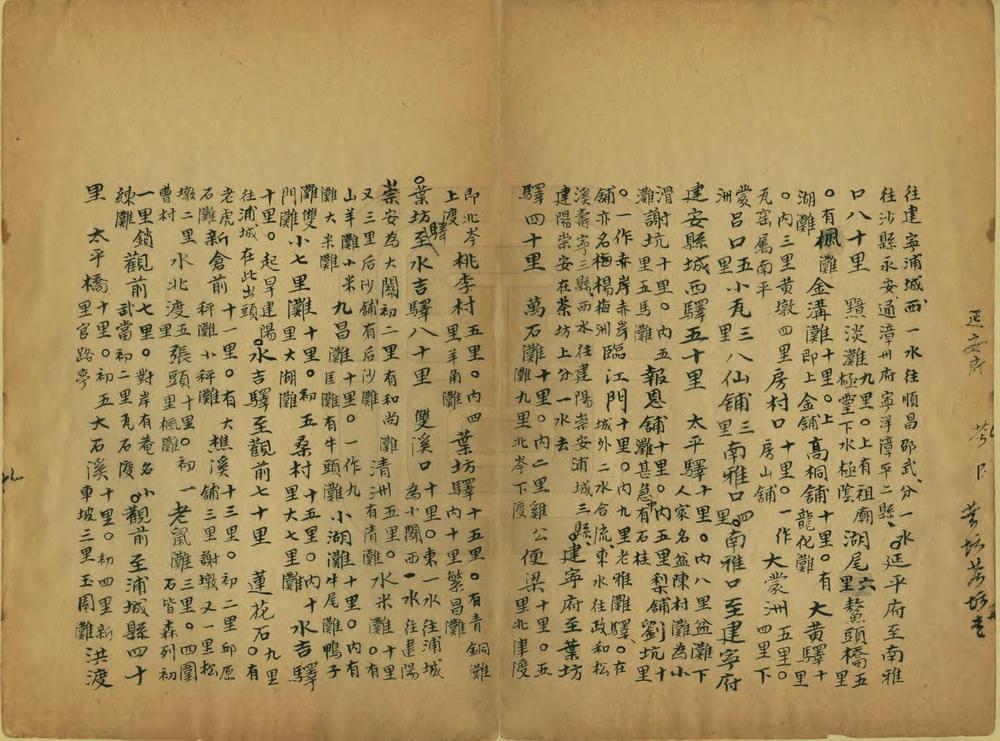 往建寧浦城西一水往順昌邵武分一水
往沙縣永安通漳州府寧洋漳平二縣。延平府至南雅
口八十里 黯淡灘九里。上有祖廟湖尾六里鰲頭橋五里
。有楓灘金溝灘十里。上即上金舖高桐舖十里。有龍化灘大黃驛十
湖灘
。內三里黃墩四里房村口十里。一作房山舖大蒙洲五里。四里下
瓦窑屬南平
蒙洲呂口五里小瓦三里八仙舖三里南雅口四里。南雅口至建寧府
建安縣城西驛五十里 太平驛十里。內八里益灘下人家名益陳村灘為小
滑灘謝坑十里。內五里五馬灘報恩舖十里。內五里梨舖劉坑十里
。一作赤岸赤岸舖亦名楊梅洲臨江門十里。內九里老雅灘驛。在城外二水合流東水往政和松
溪壽寧三縣西水往建陽崇安浦城三縣。建寧府至葉坊
建陽崇安在茶坊上分一水去
驛四十里 萬石灘十里。內二里雞公灘九里北岑下渡便梁十里。五里北津渡
即北岑上渡桃李村五里。內四里羊角灘葉坊驛十五里。有青銅灘內十里繁昌灘
。葉坊驛至水吉驛八十里 雙溪口十里。東一水往浦城為小關西一水往建陽
崇安為大關初二里有和尚灘又三里后沙舖有后沙灘清洲五里。有清灘水米灘十里。有
山羊灘小米灘大米灘九昌灘十里。一作九匡灘有牛頭灘小湖灘十里。內有牛尾灘鴨子
灘雙門灘小七里灘十里。初五里大湖灘桑村十五里。內十里大七里灘水吉驛
十里。起旱建陽往浦城在此出頭。水吉驛至觀前七十里 蓮花石。九里有
老虎石灘新倉前十一里。有大秤灘小秤灘樵溪十三里。初二里邱原舖三里謝墩又一里松
墩二里曹村水北渡五里張頭十里。初一里楓灘老鼠灘三里。四圍石皆森列初
一里鎖練灘觀前七里。對岸有菴名小武當初二里瓦石渡。觀前至浦城縣四十
里 太平橋十里。初五里官路亭大石溪十里。初四里新東坡三里玉圍灘洪渡
延安府